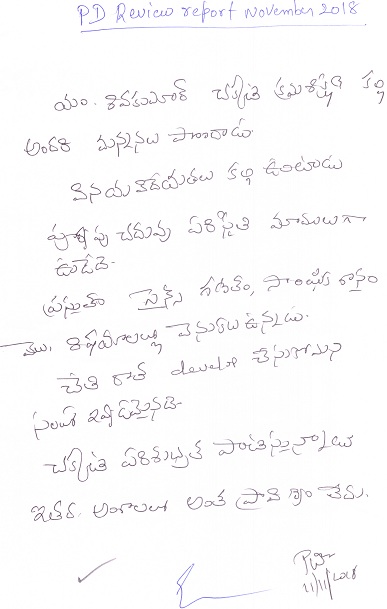 PD Review report November 2018
యం. శివకుమార్ చక్కటి క్రమశిక్షణ కల్గి
అందరి మన్ననలు పొందాడు.
వినయ విధేయతలు కల్గి ఉంటాడు
చదువు పరిస్థితి మామూలుగా
ఉండేది.
ప్రస్తుతం సైన్స్ గణితం, సాంఘిక శాస్త్రం
వెనుకబడి ఉన్నాడు.
చేతి రాత develop చేసుకోవలసిన
చక్కటి పరిశుభ్రత పాటిస్తున్నాడు
ఇతర అంశాలలో అంత ప్రావీణ్యం లేదు.
11/11/2018